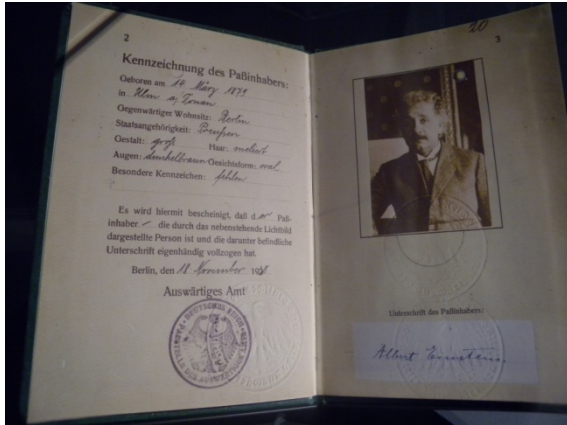 2
Kennzeichnung des Paßinhabers:
Geboren am 14 März 1879
in Ulm a/Donau
Gegenwärtiges Wohnsitz: Berlin
Staatsangehörigkeit: Preußen
Gestalt: groß Haar: meliert
Augen: dunkelbraun Gesichtsform: oval
Besondere Kennzeichen: fehlen
Es wird hiermit bescheinigt, daß der Paß-
inhaber die durch das nebenstehende Lichtbild
dargestellte Person ist und die darunter befindliche
Unterschrift eigenhändig vollzogen hat.
Berlin, den 18 November
Auswärtiges Amt
DEUTSCHES REICH
20
3
Unterschrift des Paßinhabers:
Albert Einstein.